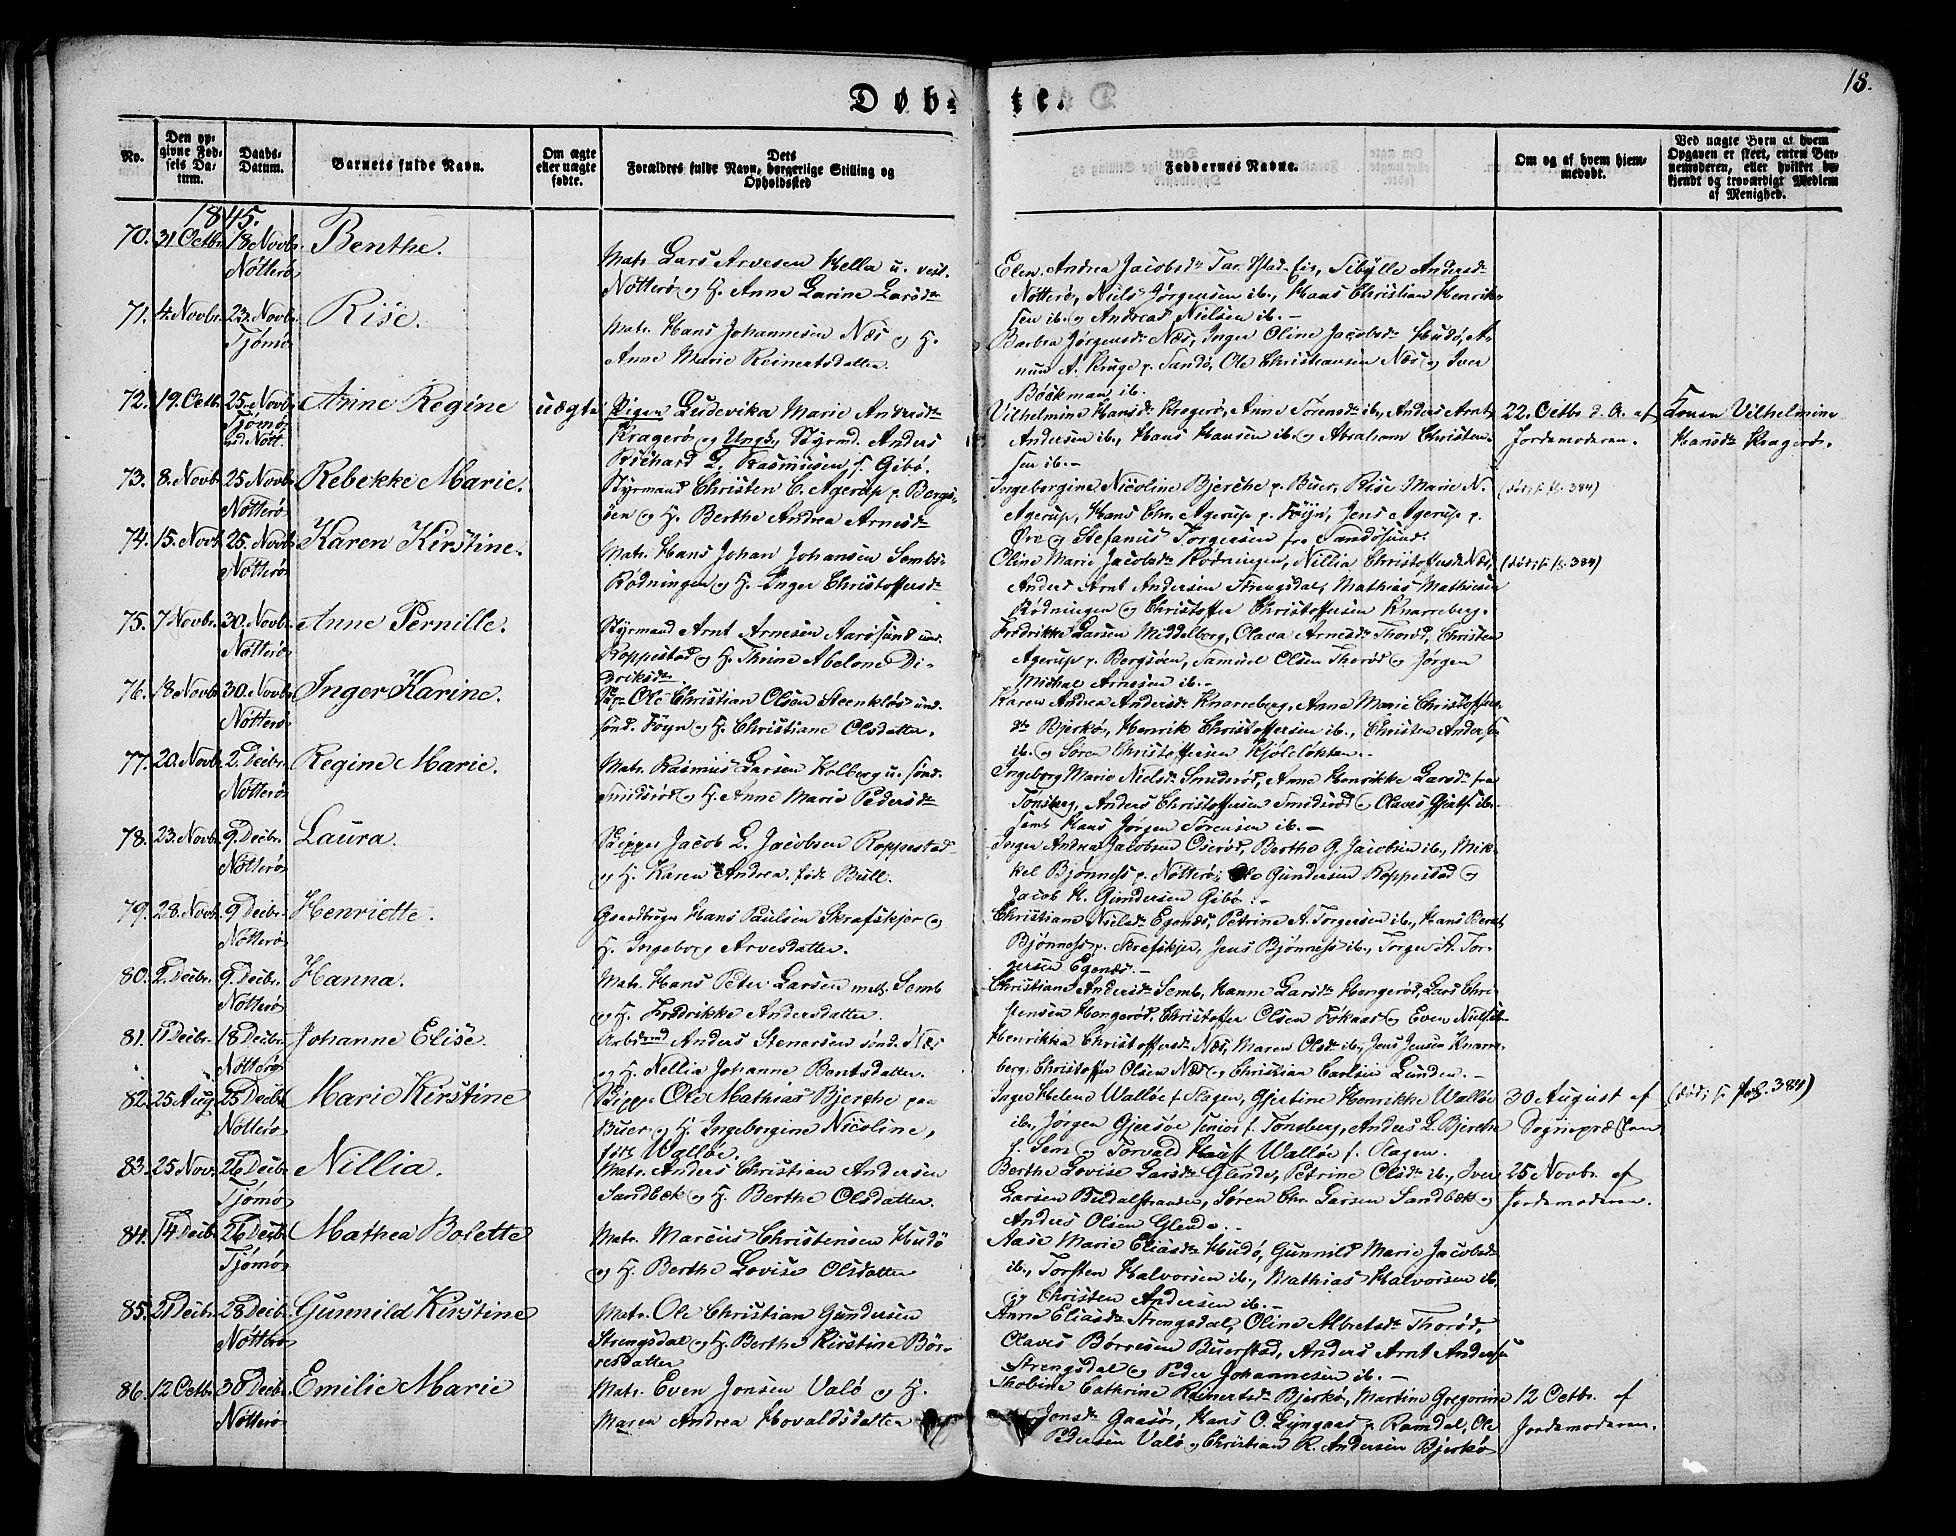 18.
Døb- te.
No.
Den op-
givne Fød-
sels Da-
tum.
Daabs-
Datum.
Barnets fulde Navn.
Om ægte
eller uægte
fødte.
Dets
Forældres fulde Navn, borgerlige Stilling og
Opholdssted
Faddernes Navne.
Om og af hvem hjem-
medøbt.
Ved uægte Børn at hvem
Opgaven er skeet, enten Bar-
nemoderen, eller hvilket be-
kjendt og troværdigt Medlem
af Menighed.
1845.
70. 31 Octbr. 18 Novbr. Benthe.
Nøtterø
Matr. Lars Arvesen Hella u. vest.
Nøtterø og H. Anne Larine Larsdr
Elen Andrea Jacobsdr Sibylle Andersdr
Nøtterø, Niels Jørgensen ib., Hans Christian Henrik-
sen ib. og Andreas Nielsen ib. –
71. 4. Novbr. 23. Novbr. Rise.
Tjømø
Matr. Hans Johannesen Næs og H.
Anne Marie Reinertsdatter.
Barbra Jørgensdr Næs, Inger Oline Jacobsdr Hudø, A-
nun A. Kruge p. Sandø, Ole Christiansen Næs og Iver
Bøckman ib.
72. 19. Octb. 25. Novb. Anne Regine uægte
Tjømø
Pigen Ludevika Marie Andersdr
Kragerø og Ungk., Styrmd. Anders
Richard L. Rasmusen f. Gibø.
Vilhelmine Hansdr Kragerø, Anne Sørensdr ib., Anders Arnt
Andersen ib., Hans Hansen ib. og Abraham Christen-
sen ib. –
22. Octbr. d. A. af
Jordemoderen.
Konen Vilhelmine
Hansdr Kragerø.
73. 8. Novb. 25 Novb. Rebekke Marie.
Nøtterø
Styrmand Christen C. Agerup p. Bergs-
øen og H. Berthe Andrea Arnesdr
Ingeborgine Nicoline Bjerche p. Buer, Rise Marie N.
Agerup, Hans Chr. Agerup p. Føyn, Jens Agerup p.
Øre og Stefanus Torgersen fra Sandøsund.
(død; s. fl. 384)
74. 15. Novb. 25. Novb. Karen Kirstine.
Nøtterø
Matr. Hans Johan Johansen Sembs-
Rødningen og H. Inger Christoffersdr
Oline Marie Jacobsdr Rødningen, Nillia Christoffersdr Næs,
Anders Arnt Andersen Strengsdal, Mathias Mathisen
Rødningen og Christoffer Christoffersen Knarreberg.
(død; s. fl. 384)
75. 7 Novbr. 30. Novb. Anne Pernille.
Nøtterø
Styrmand Arnt Arnesen Aarøsund und.
Roppestad og H. Thrine Abelone Di-
driksdr.
Fredrikke Larsen Middelborg, Olava Arnesdr Thorød, Christen
Agerup p. Bergsøen, Samuel Olsen Thorød og Jørgen
Michal Arnesen ib. –
76. 18. Novb. 30. Novb. Inger Karine.
Nøtterø
Ole Christian Olsen Steenkløs und.
sønd. Føyn og H. Christiane Olsdatter.
Karen Andrea Andersdr Knarreberg, Anne Marie Christoffers-
dr Bjerkø, Henrik Christoffersen ib., Christen Andersen
ib. og Søren Christoffersen Kjøleløkken. –
77. 20. Novb. 2. Decbr. Regine Marie.
Nøtterø
Matr. Rasmus Larsen Kolberg u. sønd.
Smidsrød og H. Anne Marie Pedersdr
Ingeborg Marie Nielsdr Smidsrød, Anne Henrikke Larsdr fra
Tønsberg, Anders Christoffersen Smidsrød og Olaves ib.
samt Hans Jørgen Sørensen ib. –
78. 23. Novb. 9. Decbr. Laura.
Nøtterø
Skipper Jacob L. Jacobsen Roppestad
og H. Karen Andrea, født Bull.
Inger Andrea Jacobsen Oserød, Berthe G. Jacobsen ib., Mik-
kel Bjønness p. Nøtterø, Ole Gundersen Roppestad og
Jacob H. Gundersen Gibø. –
79. 28. Novb. 9 Decbr. Henriette.
Nøtterø
Gaardbruger Hans Paulsen Skrafskjer og
H. Ingeborg Arvesdatter.
Christiane Nielsdr Egenæs, Petrine A. Torgersen ib., Hans Bernt
Bjønness p. Skrafskjer, Jens Bjønness ib., Torger A. Tor-
gersen Egenæs. –
80. 2. Decbr. 9. Decbr. Hanna.
Nøtterø
Matr. Hans Peter Larsen mell. Semb
og H. Fredrikke Andersdatter.
Christiane Andersdr Semb, Hanne Larsdr Hengerød, Lars Chri-
stensen Hengerød, Christoffer Olsen Fokaas og Even Nielsen ib.
81. 11 Decbr. 18 Decbr. Johanne Elise.
Nøtterø
Arbsmd Anders Stenersen sønd. Næs
og H. Nellia Johanne Berntsdatter.
Henrikka Christoffersdr Næs, Maren Olsdr ib., Jens Jensen Knarre-
berg, Christoffer Olsen Næs og Christian Carlsen Lunden. –
82. 25 Aug. 25 Decbr. Marie Kirstine
Nøtterø
Skipper Ole Mathias Bjerche paa
Buer og H. Ingeborgine Nicoline,
født Walløe.
Inger Helene Walløe f. Slagen, Gjertine Henrikke Walløe
ib., Jørgen Gjersøe senior f. Tønsberg, Anders L. Bjerche
f. Sem og Torvald Hauff Walløe f. Slagen.
30 August af
Sognepræsten.
(død; s. pag. 384)
83. 25 Nov. 26 Decbr. Nillia.
Tjømø
Matr. Anders Christian Andersen
Sandbæk og H. Berthe Olsdatter.
Berthe Lovise Larsdr Glende, Petrine Olsdr ib., Iver
Larsen Budalstranden, Søren Chr. Larsen Sandbæk og
Anders Olsen Glende. –
25 Novbr. af
Jordemoderen.
84. 14 Decbr. 26 Decbr. Mathea Bolette
Tjømø
Matr. Marcus Christensen Hudø
og H. Berthe Lovise Olsdatter
Aase Marie Eliasdr Hudø, Gunnild Marie Jacobsdr
ib., Torsten Halvorsen ib., Mathias Halvorsen ib.
og Christen Andersen ib. –
85. 21 Decbr. 28 Decbr. Gunnild Kirstine
Nøtterø
Matr. Ole Christian Gundersen
Strengsdal og H. Berthe Kirstine Bør-
resdatter
Anne Eliasdr Strengsdal, Oline Albretsdr Thorød,
Olaves Børresen Buerstad, Anders Arnt Andersen
Strengsdal og Peder Johannesen ib. –
86. 12 Octb. 30 Decbr. Emilie Marie
Nøtterø
Matr. Even Jonsen Valø og H.
Maren Andrea Hovaldsdatter
Thobine Cathrine Reinertsdr Bjerkø, Martine Gregorine
Jonsdr Gaasø, Hans O. Lyngaas p. Ramdal, Ole
Pedersen Valø og Christian R. Andersen Bjerkø
12 Octbr. af
Jordemoderen.